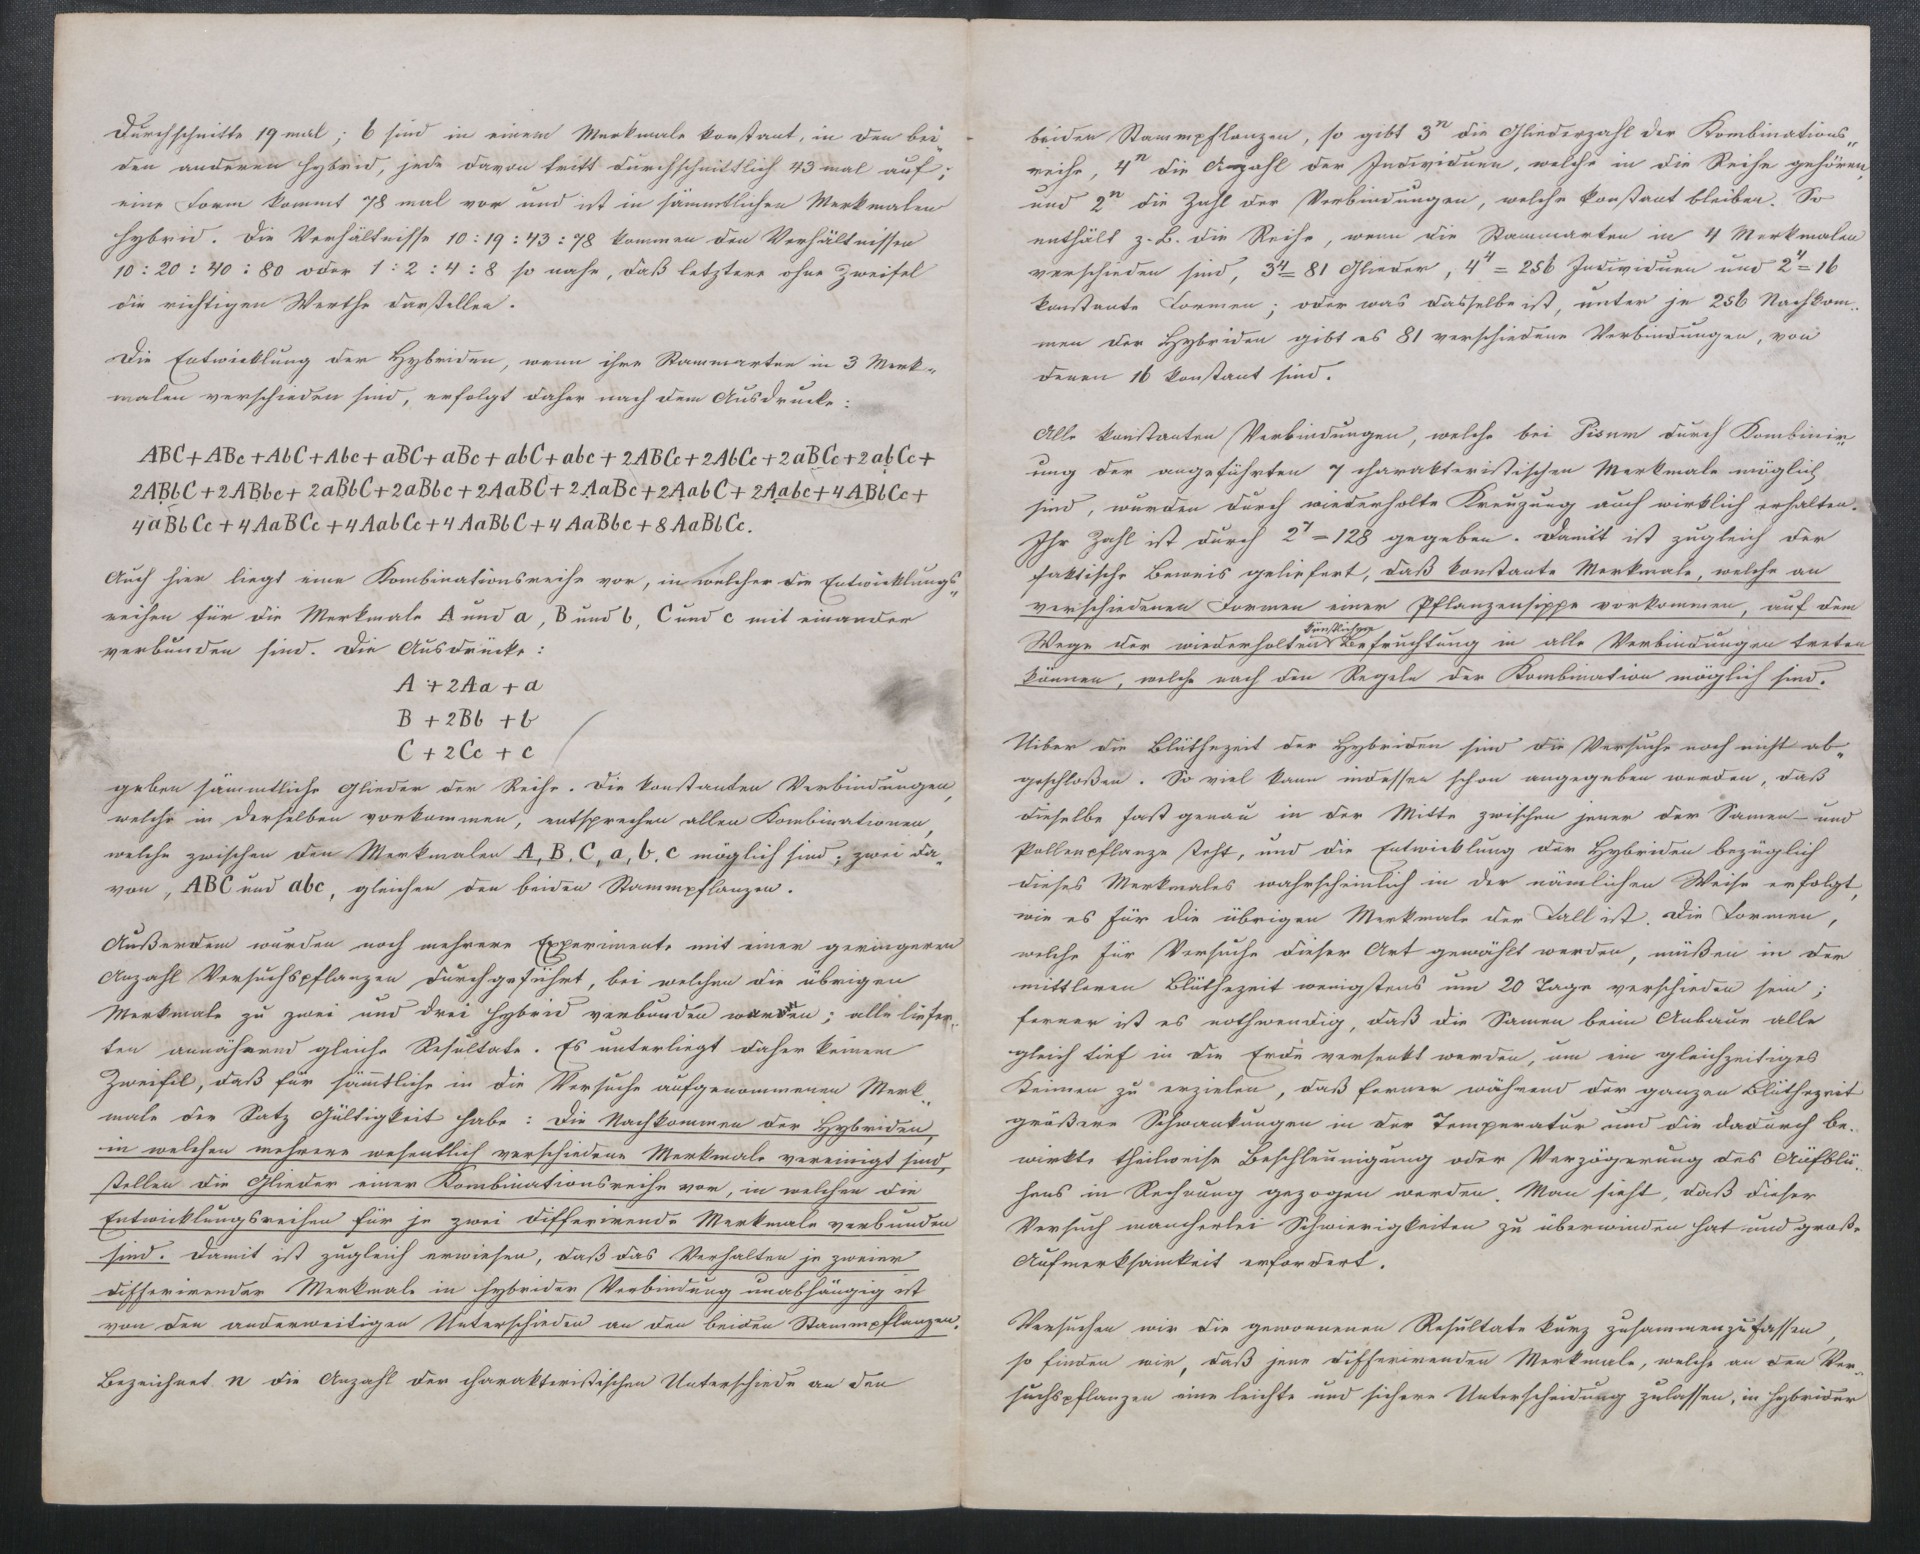 Durchschnitte 19 mal; 6 sind in einem Merkmale konstant, in den bei-
den anderen hybrid, jede davon tritt durchschnittlich 43 mal auf;
eine Form kommt 78 mal vor und ist in sämmtlichen Merkmalen
hybrid. Die Verhältnisse 10:19:43:78 kommen den Verhältnissen
10:20:40:80 oder 1:2:4:8 so nahe, daß letztere ohne Zweifel
die richtigen Werthe darstellen.
Die Entwicklung der Hybriden, wenn ihre Stammarten in 3 Merk-
malen verschieden sind, erfolgt daher nach dem Ausdrucke:
ABC + ABc + AbC + Abc + aBC + aBc + abC + abc + 2ABCc + 2AbCc + 2aBCc + 2abCc +
2ABbC + 2ABbc + 2aBbC + 2aBbc + 2AaBC + 2AaBc + 2AabC + 2Aabc + 4ABbCc +
4aBbCc + 4AaBCc + 4AabCc + 4AaBbC + 4AaBbc + 8AaBbCc.
Auch hier liegt eine Kombinationsreihe vor, in welcher die Entwicklungs-
reihen für die Merkmale A und a, B und b, C und c mit einander
verbunden sind. Die Ausdrücke:
A + 2Aa + a
B + 2Bb + b
C + 2Cc + c
geben sämmtliche Glieder der Reihe. Die konstanten Verbindungen,
welche in derselben vorkommen, entsprechen allen Kombinationen,
welche zwischen den Merkmalen A, B, C, a, b, c möglich sind; zwei da-
von, ABC und abc, gleichen den beiden Stammpflanzen.
Außerdem wurden noch mehrere Experimente mit einer geringeren
Anzahl Versuchspflanzen durchgeführt, bei welchen die übrigen
Merkmale zu zwei und drei hybrid verbunden waren; alle liefer-
ten annähernd gleiche Resultate. Es unterliegt daher keinem
Zweifel, daß für sämmtliche in die Versuche aufgenommenen Merk-
male der Satz Gültigkeit habe: die Nachkommen der Hybriden,
in welchen mehrere wesentlich verschiedene Merkmale vereinigt sind,
stellen die Glieder einer Kombinationsreihe vor, in welchen die
Entwicklungsreihen für je zwei differirende Merkmale verbunden
sind. Damit ist zugleich erwiesen, daß das Verhalten je zweier
differirender Merkmale in hybrider Verbindung unabhängig ist
von den anderweitigen Unterschieden an den beiden Stammpflanzen.
Bezeichnet n die Anzahl der charakteristischen Unterschiede an den
beiden Stammpflanzen, so gibt 3ⁿ die Gliederzahl der Kombinations-
reihe, 4ⁿ die Anzahl der Individuen, welche in die Reihe gehören,
und 2ⁿ die Zahl der Verbindungen, welche konstant bleiben. So
enthält z.B. die Reihe, wenn die Stammarten in 4 Merkmalen
verschieden sind, 3⁴ = 81 Glieder, 4⁴ = 256 Individuen und 2⁴ = 16
konstante Formen; oder was dasselbe ist, unter je 256 Nachkom-
men der Hybriden gibt es 81 verschiedene Verbindungen, von
denen 16 konstant sind.
Alle konstanten Verbindungen, welche bei Pisum durch Kombinir-
ung der angeführten 7 charakteristischen Merkmale möglich
sind, wurden durch wiederholte Kreuzung auch wirklich erhalten.
Ihr Zahl ist durch 2⁷ = 128 gegeben. Damit ist zugleich der
faktische Beweis geliefert, daß konstante Merkmale, welche an
verschiedenen Formen einer Pflanzensippe vorkommen, auf dem
Wege der wiederholten künstlichen Befruchtung in alle Verbindungen treten
können, welche nach den Regeln der Kombination möglich sind.
Uiber die Blüthezeit der Hybriden sind die Versuche noch nicht ab-
geschloßen. So viel kann indessen schon angegeben werden, daß
dieselbe fast genau in der Mitte zwischen jener der Samen- und
Pollenpflanze steht, und die Entwicklung der Hybriden bezüglich
dieses Merkmales wahrscheinlich in der nämlichen Weise erfolgt,
wie es für die übrigen Merkmale der Fall ist. Die Formen,
welche für Versuche dieser Art gewählt werden, müßen in der
mittleren Blüthezeit wenigstens um 20 Tage verschieden sein;
ferner ist es nothwendig, daß die Samen beim Anbaue alle
gleich tief in die Erde versenkt werden, um ein gleichzeitiges
Keimen zu erzielen, daß ferner während der ganzen Blüthezeit
größere Schwankungen in der Temperatur und die dadurch be-
wirkte theilweise Beschleunigung oder Verzögerung des Aufblü-
hens in Rechnung gezogen werden. Man sieht, daß dieser
Versuch mancherlei Schwierigkeiten zu überwinden hat und große
Aufmerksamkeit erfordert.
Versuchen wir die gewonnenen Resultate kurz zusammenzufassen,
so finden wir, daß jene differirenden Merkmale, welche an den Ver-
suchspflanzen eine leichte und sichere Unterscheidung zulassen, in hybrider